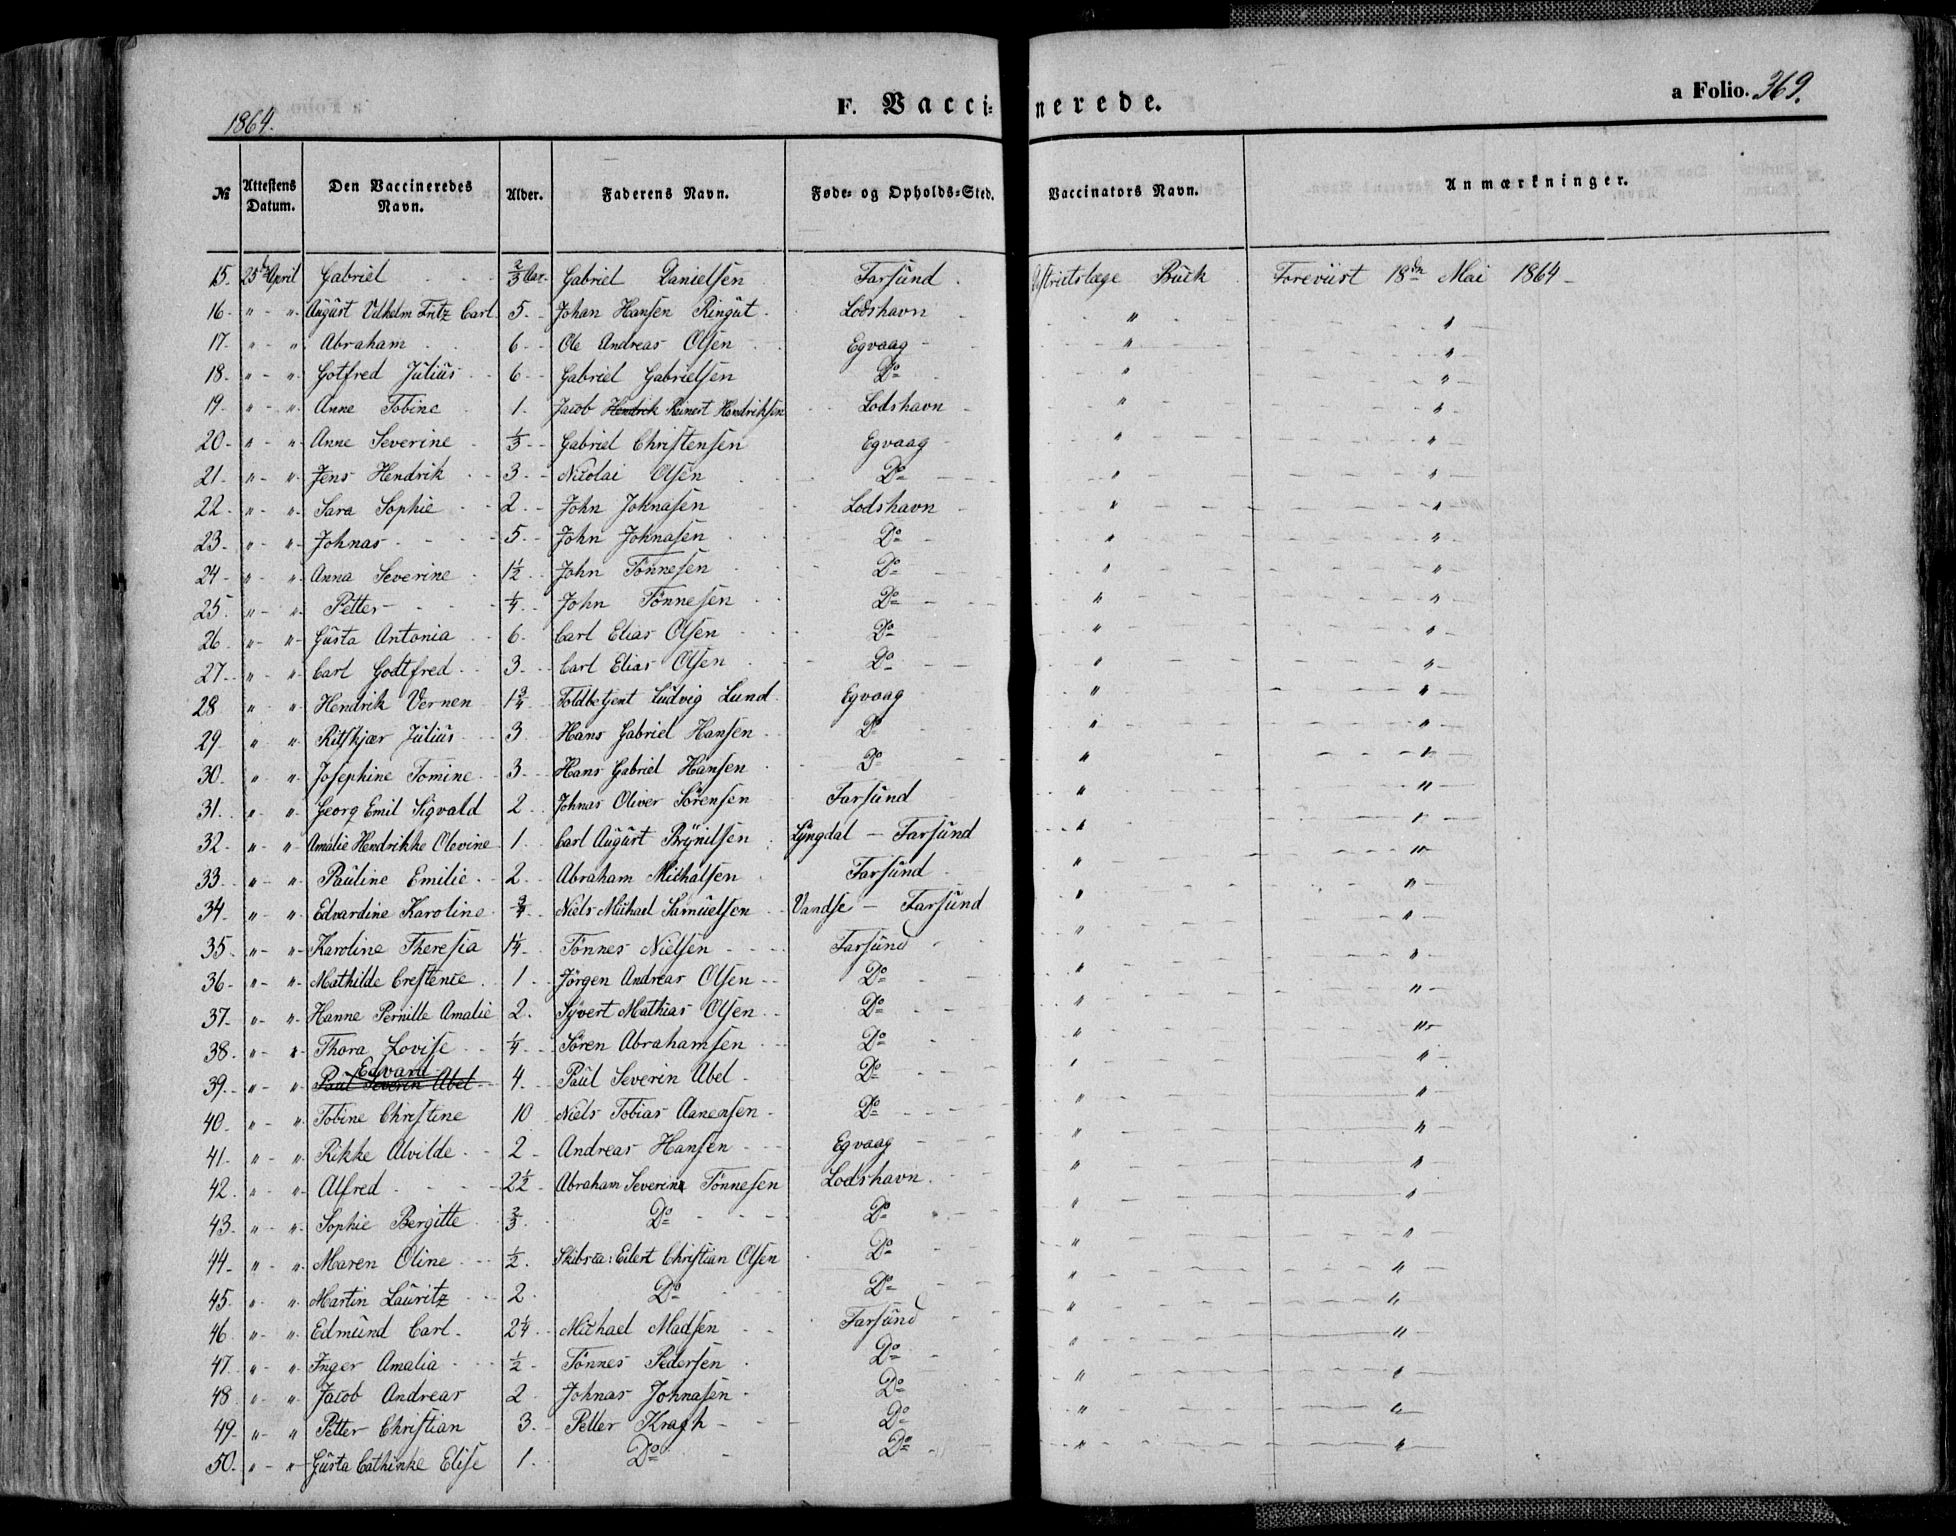 1864.
F. Vaccinerede.
a Folio. 369.
№ | Attestens Datum. | Den Vaccineredes Navn. | Alder. | Faderens Navn. | Føde- og Opholds-Sted. | Vaccinators Navn. | Anmærkninger.
15. 25de April Gabriel 2/3 Aar. Gabriel Danielsen Farsund Distriktslæge Buck Foreviist 18de Mai 1864
16 " " August Vilhelm Fritz Carl 5 Johan Hansen Ringut Lodshavn " "
17. " " Abraham 6 Ole Andreas Olsen Egvaag " "
18. " " Gotfred Julius 6 Gabriel Gabrielsen Do " "
19 " " Anne Tobine 1. Jacob Hendrik Reinert Hendriksen Lodshavn " "
20 " " Anne Severine 1/3 Gabriel Christensen Egvaag " "
21 " " Jens Hendrik 3 Nicolai Olsen Do " "
22 " " Sara Sophie 2 John Johnasen Lodshavn " "
23 " " Johnas 5 John Johnasen Do " "
24 " " Anna Severine 1 1/2 John Tönnesen Do " "
25 " " Petter 1/4 John Tönnesen Do " "
26 " " Gusta Antonia 6 Carl Elias Olsen Do " "
27 " " Carl Godtfred 3 Carl Elias Olsen Do " "
28 " " Hendrik Vernen 1 3/4 Toldbetjent Ludvig Lund Egvaag " "
29 " " Ritskjær Julius 3 Hans Gabriel Hansen Do " "
30 " " Josephine Tomine 3 Hans Gabriel Hansen Do " "
31 " " Georg Emil Sigvald 2 Johnas Oliver Sörensen Farsund " "
32 " " Amalie Hendrikke Olevine 1 Carl August Brynilsen Lyngdal – Farsund " "
33 " " Pauline Emilie 2 Abraham Michalsen Farsund " "
34 " " Edvardine Karoline 3/4 Niels Michael Samuelsen Vandse – Farsund " "
35 " " Karoline Theresia 1 1/4 Tönnes Nielsen Farsund " "
36 " " Mathilde Crestence 1 Jörgen Andreas Olsen Do " "
37 " " Hanne Pernille Amalie 2. Syvert Mathias Olsen Do " "
38 " " Thora Lovise 1/4 Sören Abrahamsen Do " "
Edvard
39 " " Paul Severin Abel 4. Paul Severin Abel Do " "
40 " " Tobine Christine 10 Niels Tobias Aanensen Do " "
41 " " Rikke Alvilde 2 Andreas Hansen Egvaag " "
42 " " Alfred 2 1/2 Abraham Severin Tönnesen Lodshavn " "
43 " " Sophie Bergitte 2/3 Do Do " "
44 " " Maren Oline 1/2 Eilert Christian Olsen Do " "
45 " " Martin Lauritz 2 Do Do " "
46 " " Edmund Carl 2 1/4 Michael Madsen Farsund " "
47 " " Inger Amalia 1/2 Tönnes Pedersen Do " "
48 " " Jacob Andreas 2 Johnas Johnasen Do " "
49 " " Petter Christian 3. Petter Kragh Do " "
50 " " Gusta Cathinke Elise 1. Do Do " "